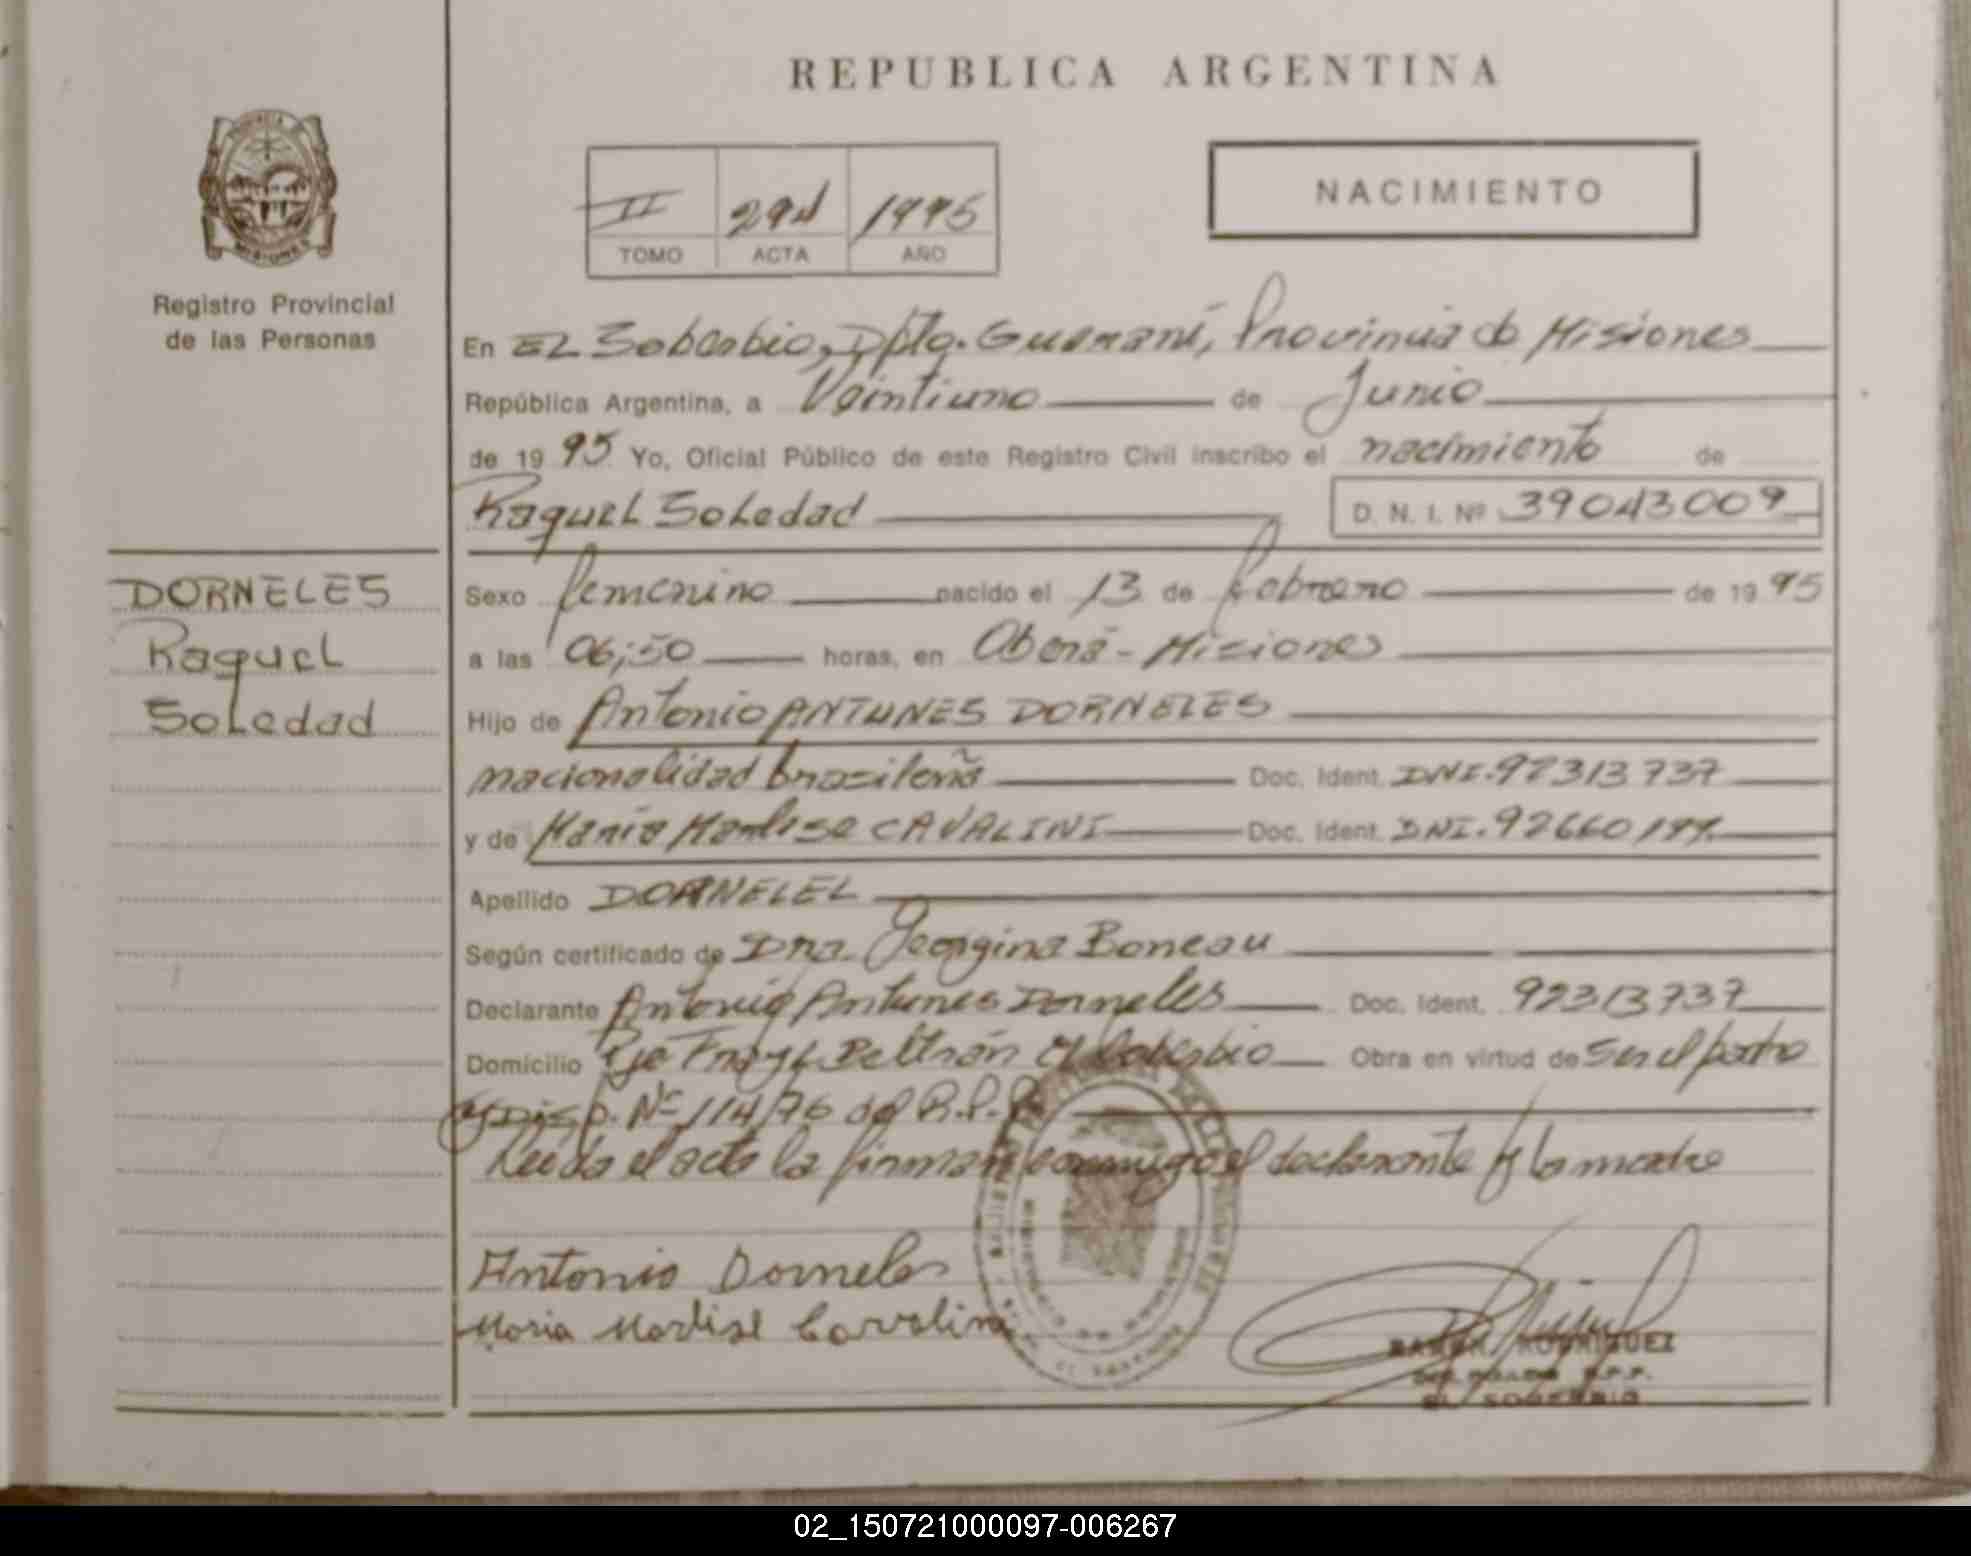 REPUBLICA ARGENTINA
II 294 1995
TOMO ACTA AÑO
NACIMIENTO
Registro Provincial
de las Personas
En EL Soberbio, Dpto. Guaraní, Provincia de Misiones
República Argentina, a Veintiuno de Junio
de 19 95 Yo, Oficial Público de este Registro Civil inscribo el nacimiento de
Raquel Soledad D. N. I. Nº 39043009
DORNELES
Raquel
Soledad
Sexo femenino nacido el 13 de febrero de 19 95
a las 06;50 horas, en Oberá - Misiones
Hijo de Antonio ANTUNES DORNELES
nacionalidad brasileña Doc. Ident. DNI. 92313737
y de María Marlise CAVALINI Doc. Ident. DNI. 92660
Apellido DORNELEL
Según certificado de Dra. Georgina Boneau
Declarante Antonio Antunes Dorneles Doc. Ident. 92313737
Domicilio Pje Fray L Beltrán El Soberbio Obra en virtud de Ser el padre
y Disp. Nº 114/76 del R.P.P.
Leída el acta la firman conmigo el declarante y la madre
Antonio Dorneles
Maria Marlise Cavalini
RAMON RODRIGUEZ
R.P.P.
EL SOBERBIO
02_150721000097-006267